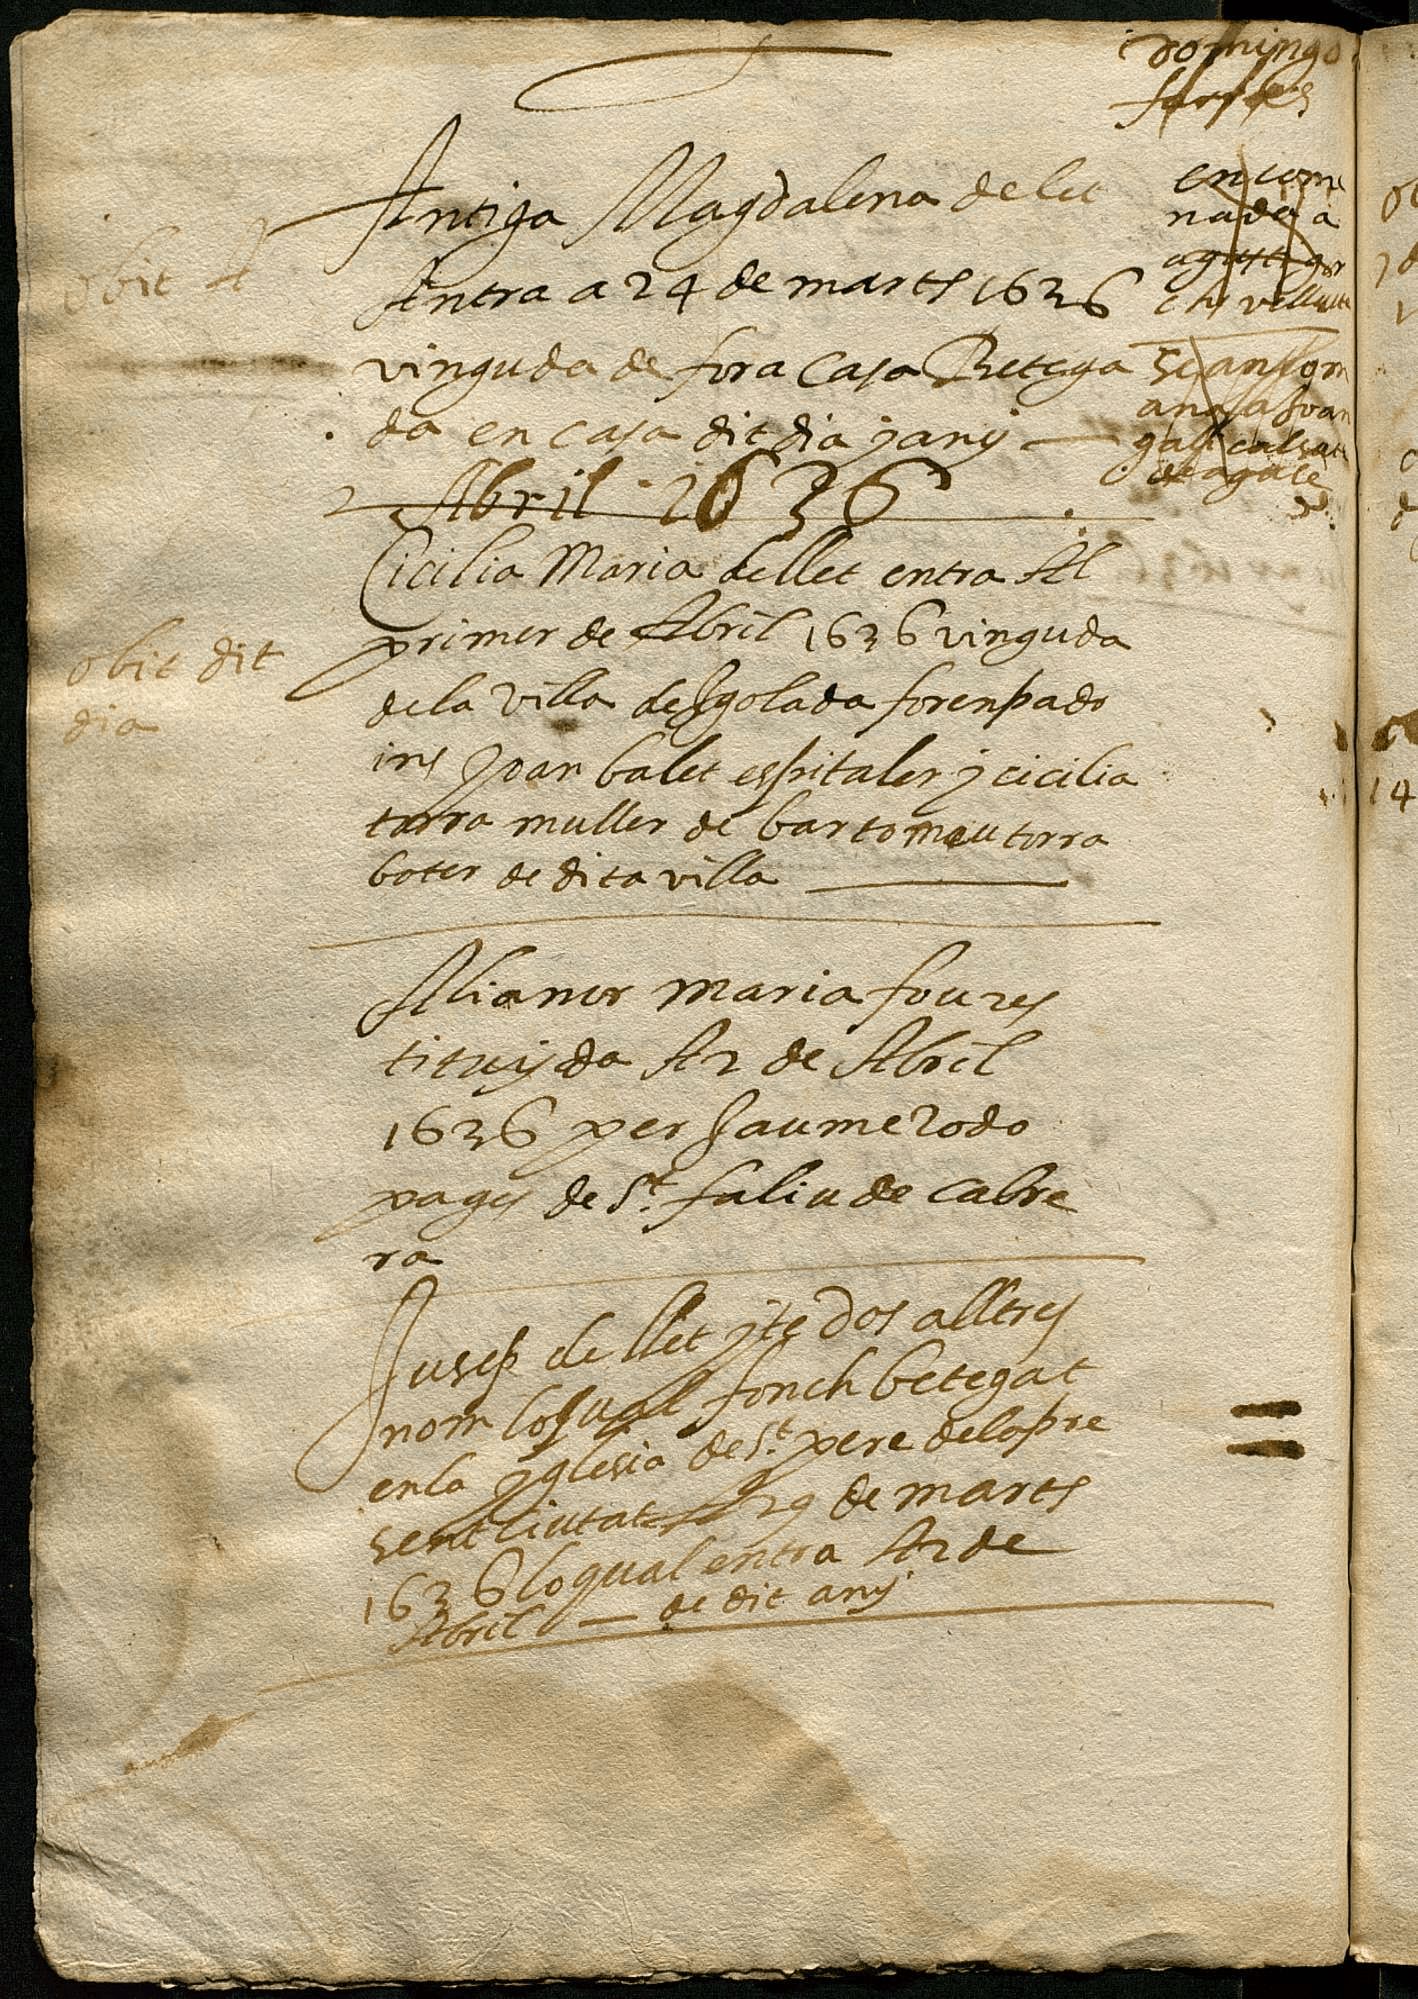 domingo
encome
nada a
Antiga Magdalena de let
Antra a 24 de marts 1636
vinguda de fora casa Betega
da en casa dit dia j anÿ
obit A
Abril 1636
Cicilia Maria de llet entra Al
primer de Abril 1636 vinguda
de la villa de Jgolada foren pado
ins Joan balet espitaler j cicilia
torra muller de bartomeu torra
boter de dita villa
obit dit
dia
Alianor maria fou res
tituÿda A 2 de Abril
1636 per Jaume rodo
pages de St. faliu de cabre
ra
Jusep de llet j te dos alltres
nom lo qual fonch betegat
en la yglesia de St. pere de la pre
sent ciutat A 29 de marts
1636 lo qual entra A 2 de
Abril — de dit anÿ